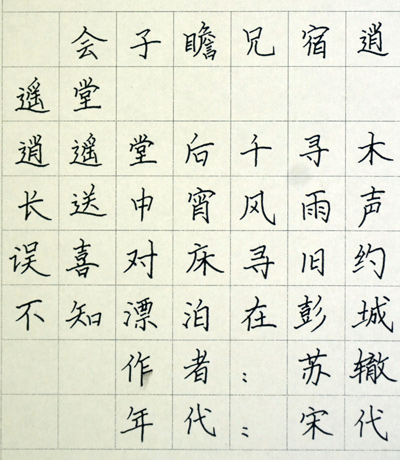 会子瞻兄宿逍
遥堂
逍遥堂后千寻木
长送中宵风雨声
误喜对床寻旧约
不知漂泊在彭城
作者：苏辙
年代：宋代